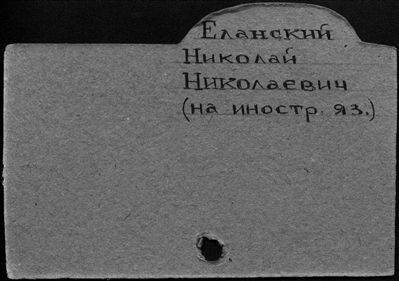 Еланский
Николай
Николаевич
(на иностр. яз.)